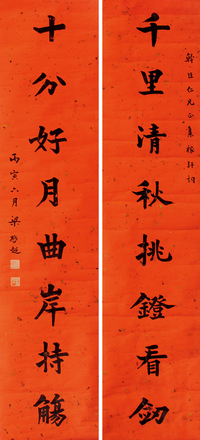 千里清秋挑鐙看劒
翰臣仁兄正集稼軒詞
十分好月曲岸持觴
丙寅六月梁啓超